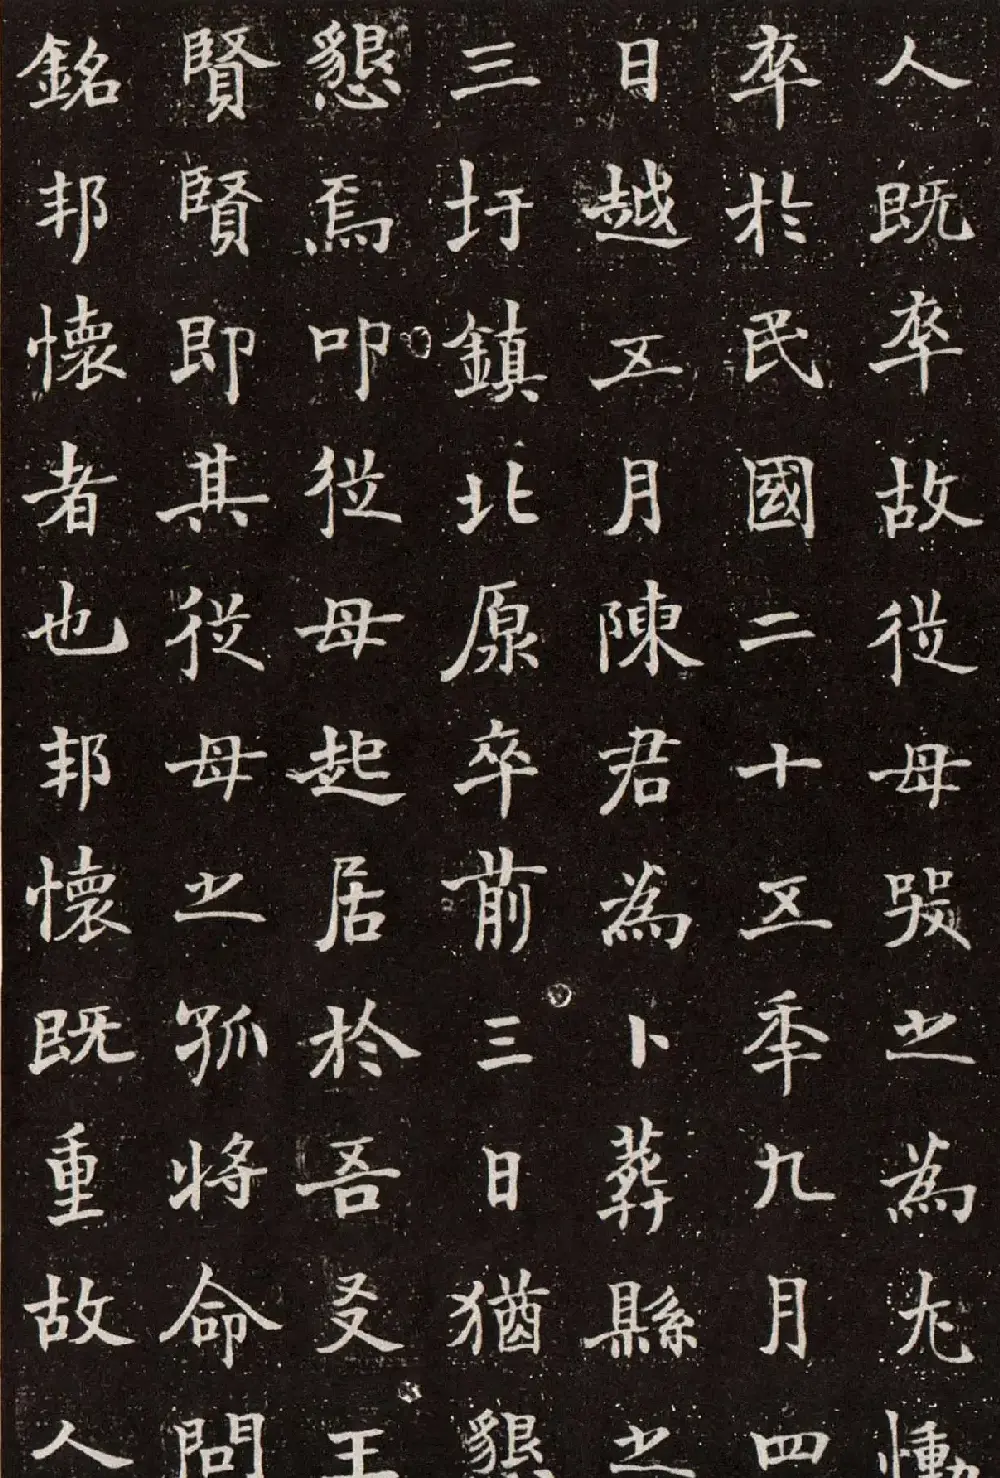 人既卒故從母哭之為尤慟
卒於民國二十五季九月四
日越五月陳君為卜葬縣之
三圩鎮北原卒前三日猶懇
懇焉叩從母起居於吾王
賢賢即其從母之孤將命問
銘邦懷者也邦懷既重故人